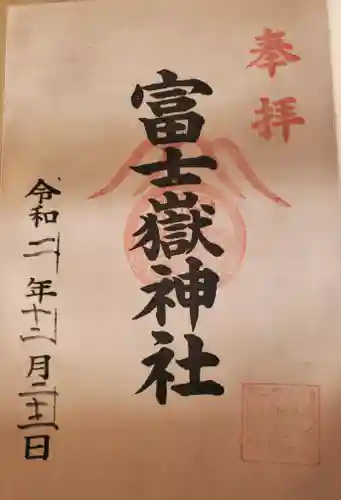 奉拝
富士嶽神社
令和二年十二月二十一日